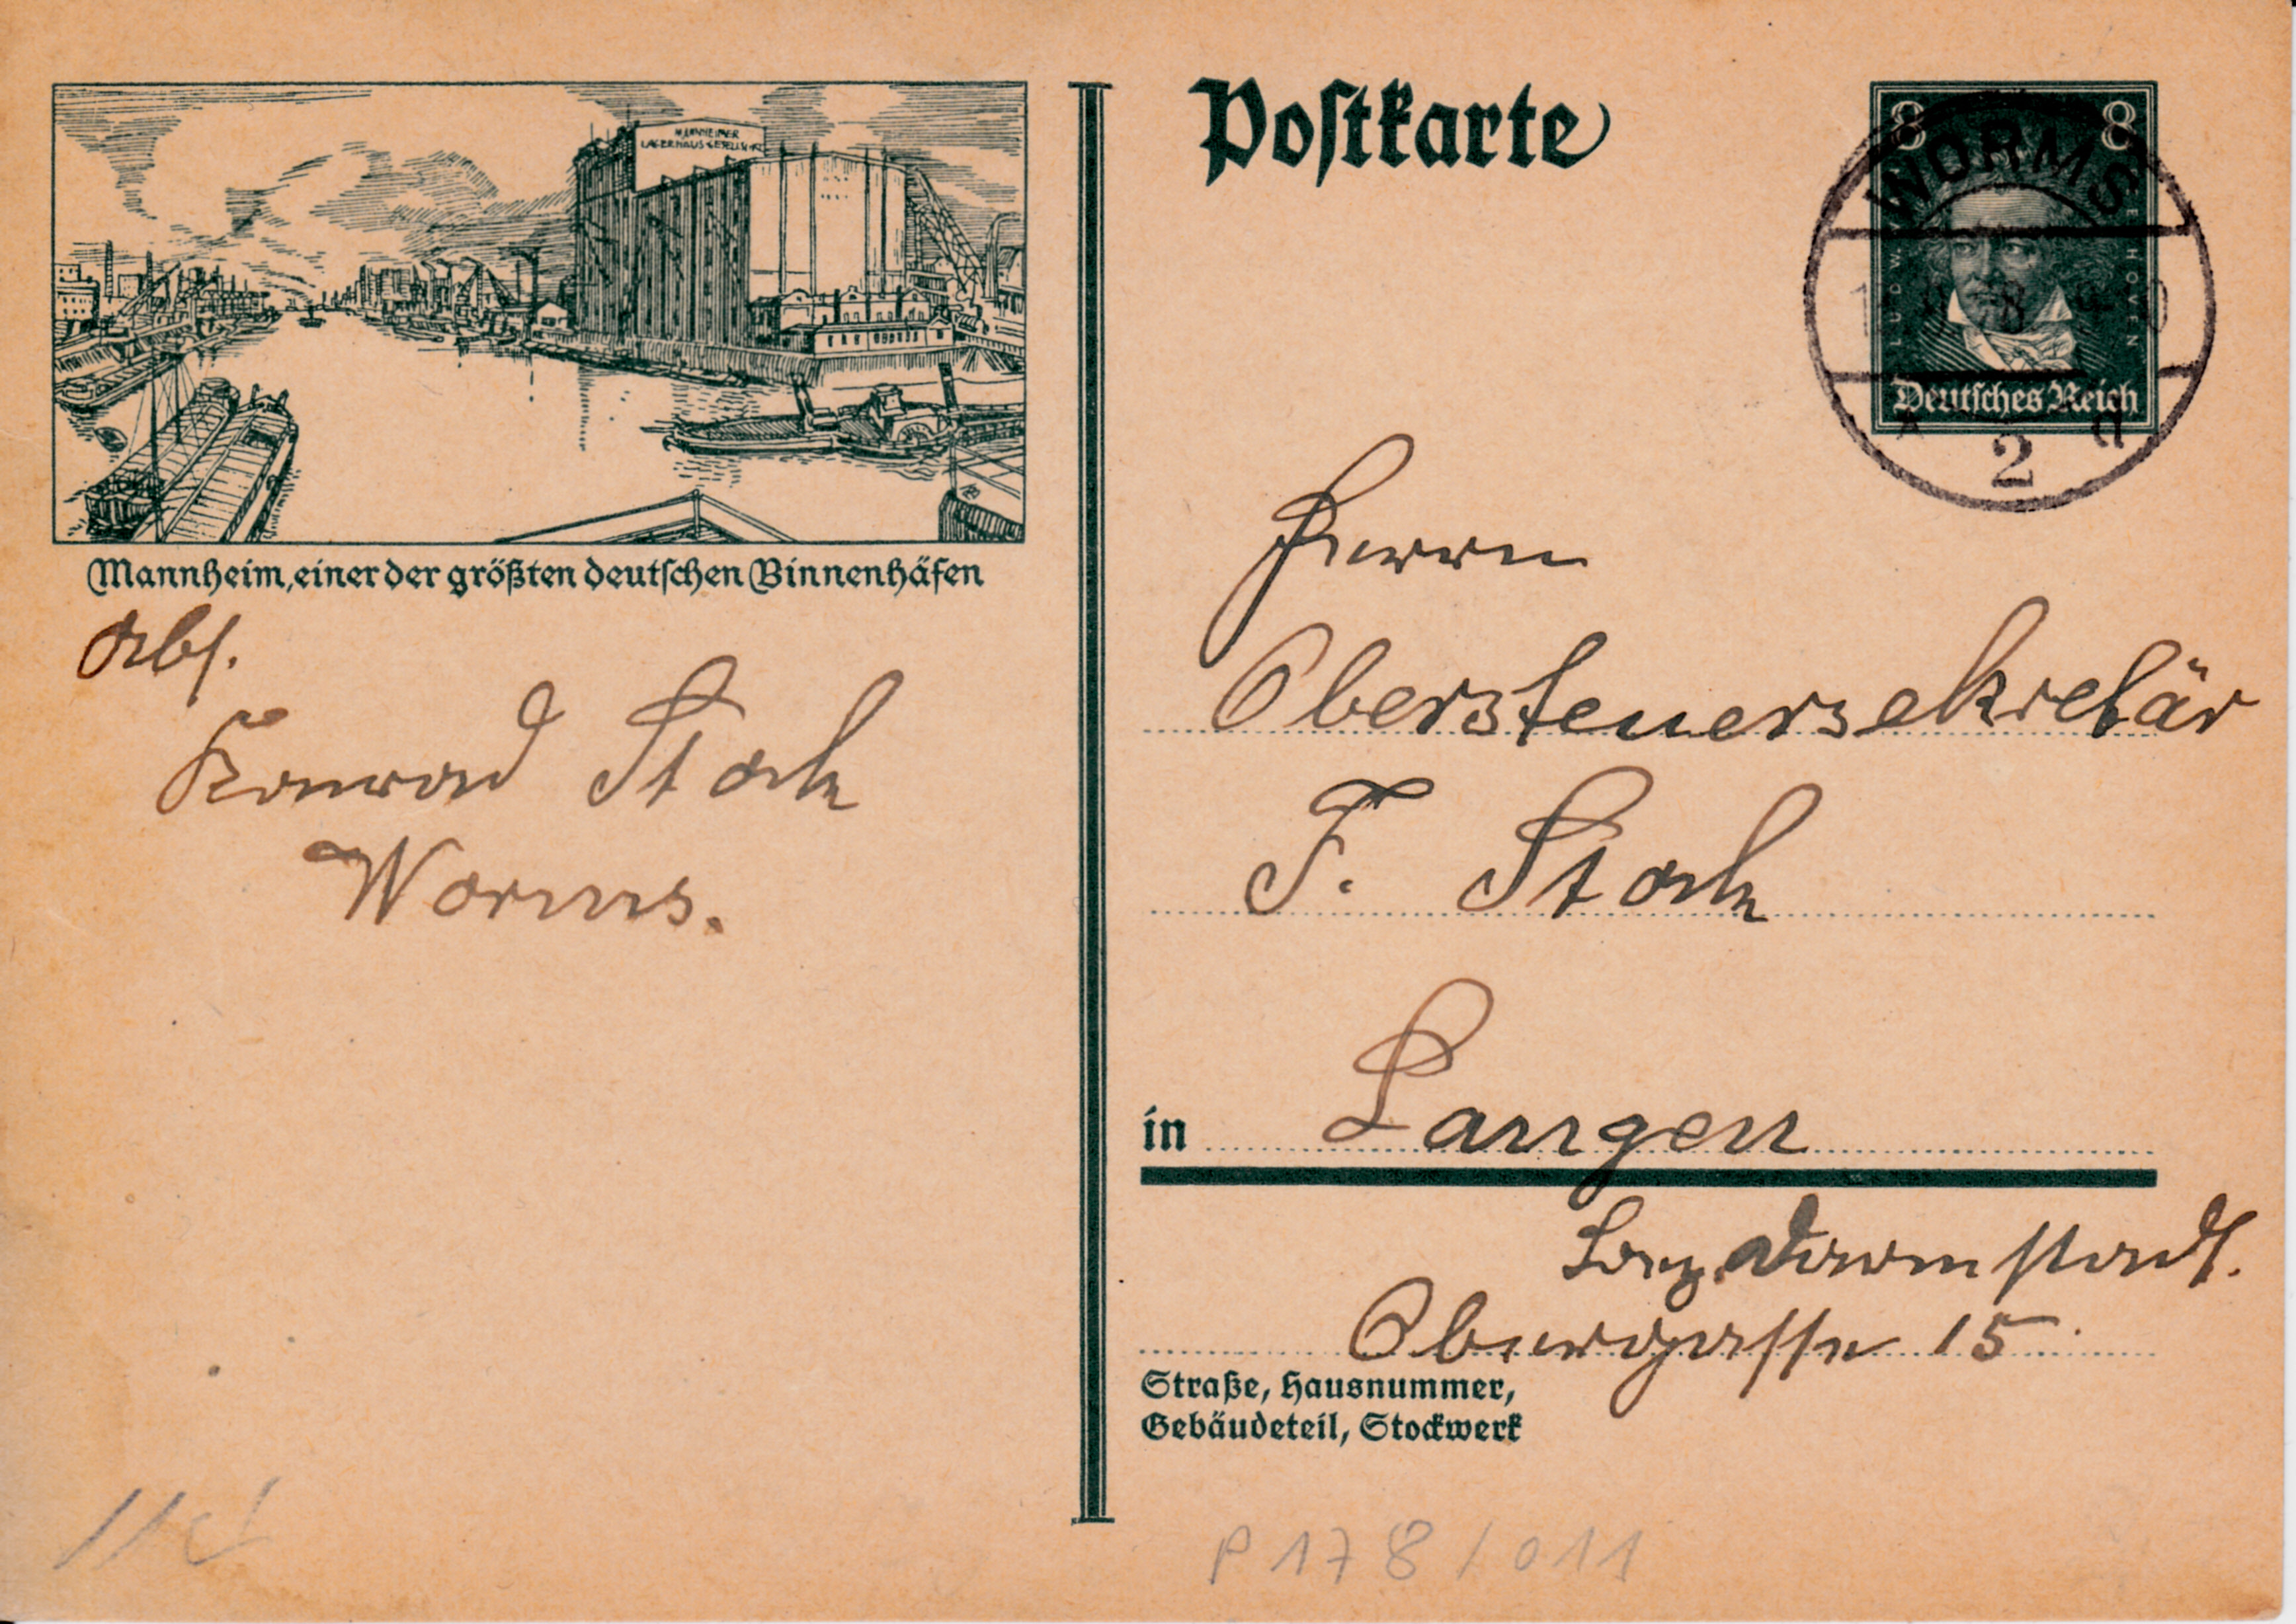 MANNHEIMER
LAGERHAUS-GESELLSCH.
Mannheim, einer der größten deutschen Binnenhäfen
Abs.
Konrad Stork
Worms.
Postkarte
8 8
LUDW. V. BEETHOVEN
Deutsches Reich
WORMS
2
Herrn
Obersteuersekretär
F. Stork
in Langen
Bez. Darmstadt.
Obergasse 15
Straße, Hausnummer,
Gebäudeteil, Stockwerk
P 178 / 011